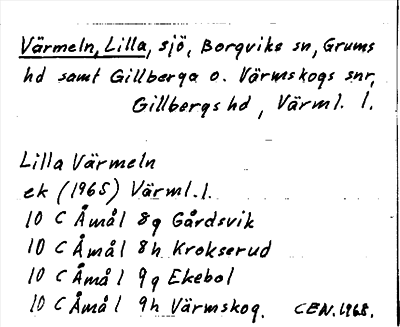 Värmeln, Lilla, sjö, Borgviks sn, Grums
hd samt Gillberga o. Värmskogs snr,
Gillbergs hd, Värml. l.
Lilla Värmeln
ek (1965) Värml.l.
10 C Åmål 8g Gårdsvik
10 C Åmål 8h Krokserud
10 C Åmål 9g Ekebol
10 C Åmål 9h Värmskog. CEN.1968.